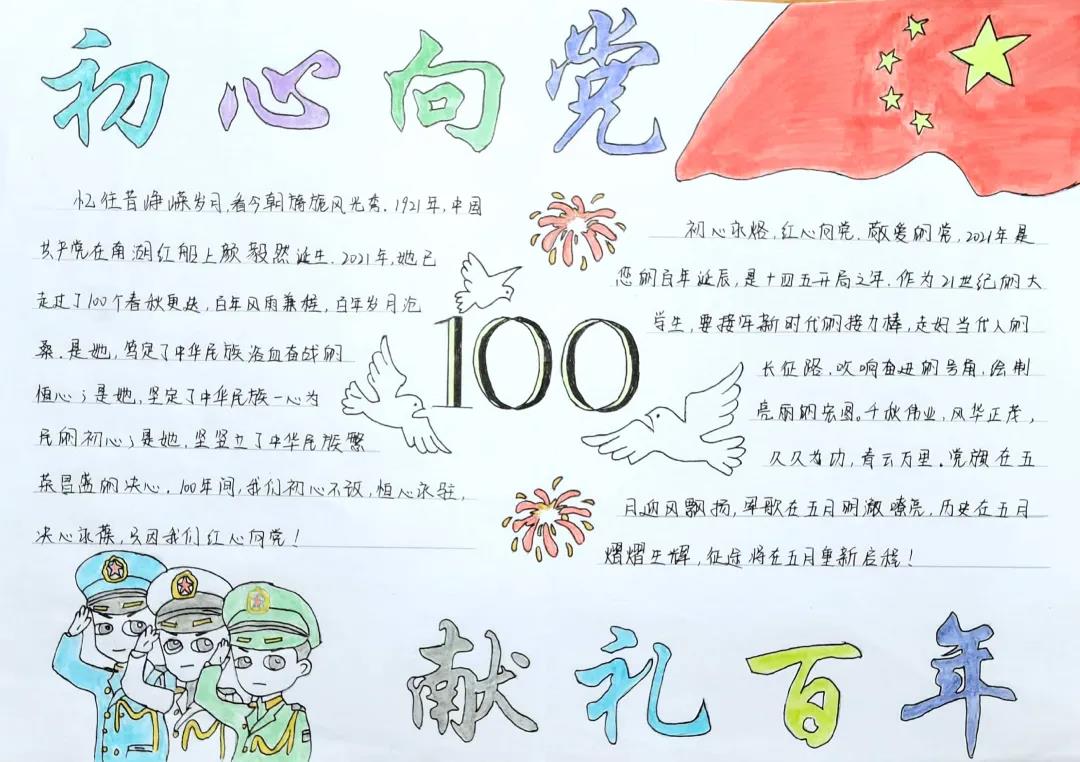 初心向党
忆往昔峥嵘岁月,看今朝旖旎风光秀.1921年,中国
共产党在南湖红船上颜毅然诞生.2021年,她已
走过了100个春秋更迭,百年风雨兼程,百年岁月沧
桑.是她,笃定了中华民族浴血奋战的
恒心;是她,坚定了中华民族一心为
民的初心;是她,坚竖立了中华民族繁
荣昌盛的决心.100年间,我们初心不改,恒心永驻,
决心永葆,只因我们红心向党!
100
初心永烙,红心向党.敬爱的党,2021年是
您的百年诞辰,是十四五开局之年.作为21世纪的大
学生,要接好新时代的接力棒,走好当代人的
长征路,吹响奋进的号角,绘制
亮丽的宏图。千秋伟业,风华正茂,
久久为功,青云万里.党旗在五
月迎风飘扬,军歌在五月明澈嘹亮,历史在五月
熠熠生辉,征途将在五月重新启程!
献礼百年